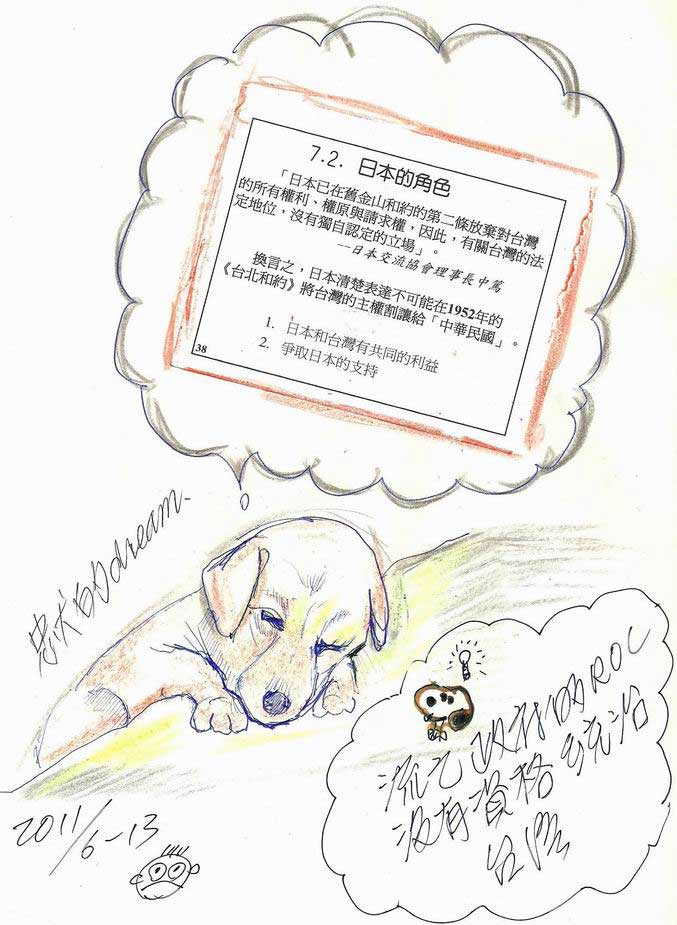 7.2. 日本的角色
「日本已在舊金山和約的第二條放棄對台灣
的所有權利、權原與請求權，因此，有關台灣的法
定地位，沒有獨自認定的立場」。
—日本交流協會理事長中篤
換言之，日本清楚表達不可能在1952年的
《台北和約》將台灣的主權割讓給「中華民國」。
1. 日本和台灣有共同的利益
2. 爭取日本的支持
38
忠犬的dream.
流亡政府的ROC
沒有資格統治
台灣
2011/6-13